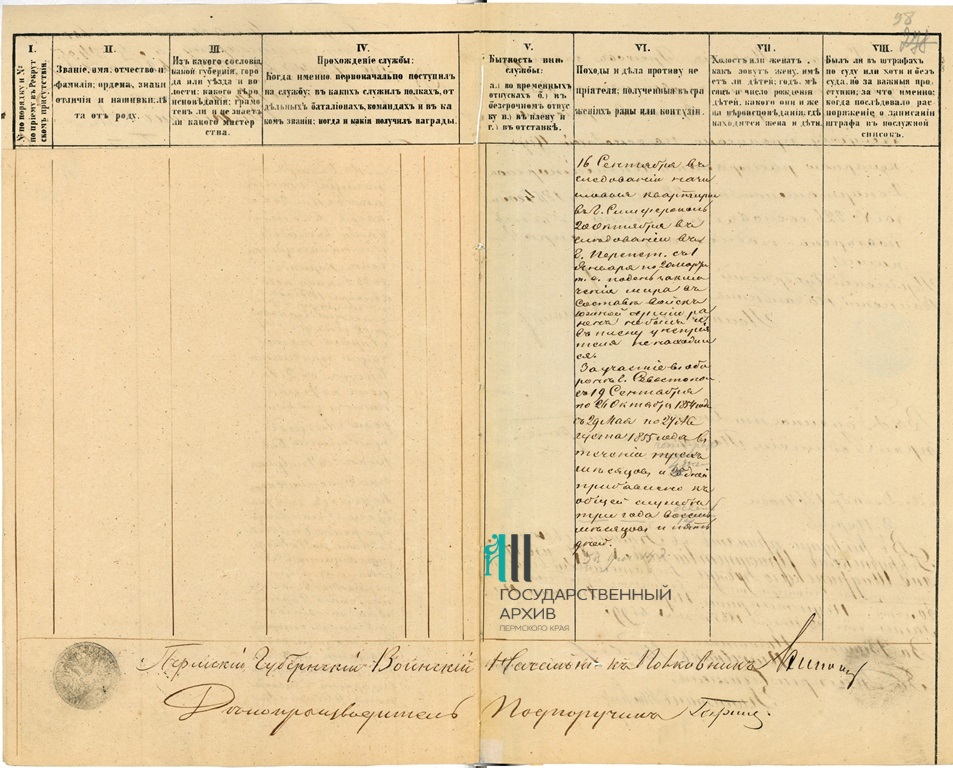 98
I.
№ по порядку и №
по приему въ Рекрут
скомъ присутствіи.
II.
Званіе, имя, отчество и
фамилія; ордена, знаки
отличія и нашивки; лѣ
та отъ роду.
III
Изъ какого сословія,
какой губерніи, горо
да или уѣзда и во
лости; какого вѣро
исповѣданія; грамо
тенъ ли и не знаетъ
ли какого мастер
ства.
IV.
Прохожденіе службы:
Когда именно первоначально поступилъ
на службу; въ какихъ служилъ полкахъ, от
дѣльныхъ баталіонахъ, командахъ и въ ка
комъ званіи; когда и какія получилъ награды.
V.
Бытность внѣ
службы:
а.) во временныхъ
отпускахъ б.) въ
безсрочномъ отпус
ку в.) въ плѣну и
г.) въ отставкѣ.
VI.
Походы и дѣла противу не
пріятеля; полученныя въ сра
женіяхъ раны или контузіи.
VII.
Холостъ или женатъ,
какъ зовутъ жену, имѣ
етъ ли дѣтей; годъ, мѣ
сяцъ и число рожденія
дѣтей, какого они и же
на вѣроисповѣданія; гдѣ
находятся жена и дѣти.
VIII.
Былъ ли въ штрафахъ
по суду или хотя и безъ
суда, но за важные про
ступки; за что именно;
когда послѣдовало рас
поряженіе о записаніи
штрафа въ послужной
списокъ.
16 Сентября въ
слѣдованіи
квартиры
въ г. Симферополь
20 Октября въ
слѣдованіи въ
г. Перекоп. съ 1
Января по 20 марта
т. е. по день заклю
ченія мира въ
составѣ войскъ
южной арміи ра
ненъ не былъ
въ плену у непрія
теля не находил
ся.
За участіе въ обо
ронѣ г. Севастопол
съ 19 Сентября
по 26 Октября 1854 года
съ 29 Мая по 27 Ав
густа 1855 года въ
теченіи трехъ
мѣсяцовъ и дней
прибавлено къ
общей службѣ
три года восемь
мѣсяцовъ и пять
дней.
ГОСУДАРСТВЕННЫЙ
АРХИВ
ПЕРМСКОГО КРАЯ
Пермскій Губернскій Воинскій Начальникъ Полковникъ
Дѣлопроизводитель Подпоручикъ